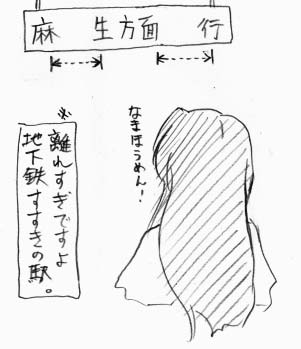 麻 生方面 行
なまほうめん!
※
離れすぎですよ
地下鉄すすきの駅。